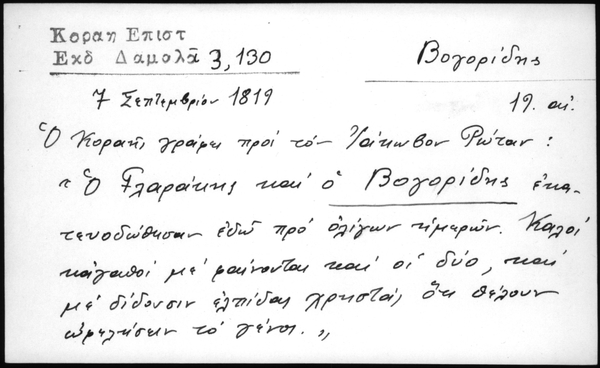 Κοραη Επιστ
Εκδ Δαμαλᾶ 3, 130
Βογορίδης
7 Σεπτεμβρίου 1819
19. αἰ.
Ὁ Κοραῆς γράφει πρὸς τὸν Ἰάκωβον Ρώταν :
"Ὁ Γλαράκης καὶ ὁ Βογορίδης ἐκα-
τευοδώθησαν ἐδῶ πρὸ ὀλίγων ἡμερῶν. Καλοὶ
κἀγαθοὶ μὲ φαίνονται καὶ οἱ δύο, καὶ
μὲ δίδουσιν ἐλπίδας χρηστάς, ὅτι θέλουν
ὠφελήσειν τὸ γένος."